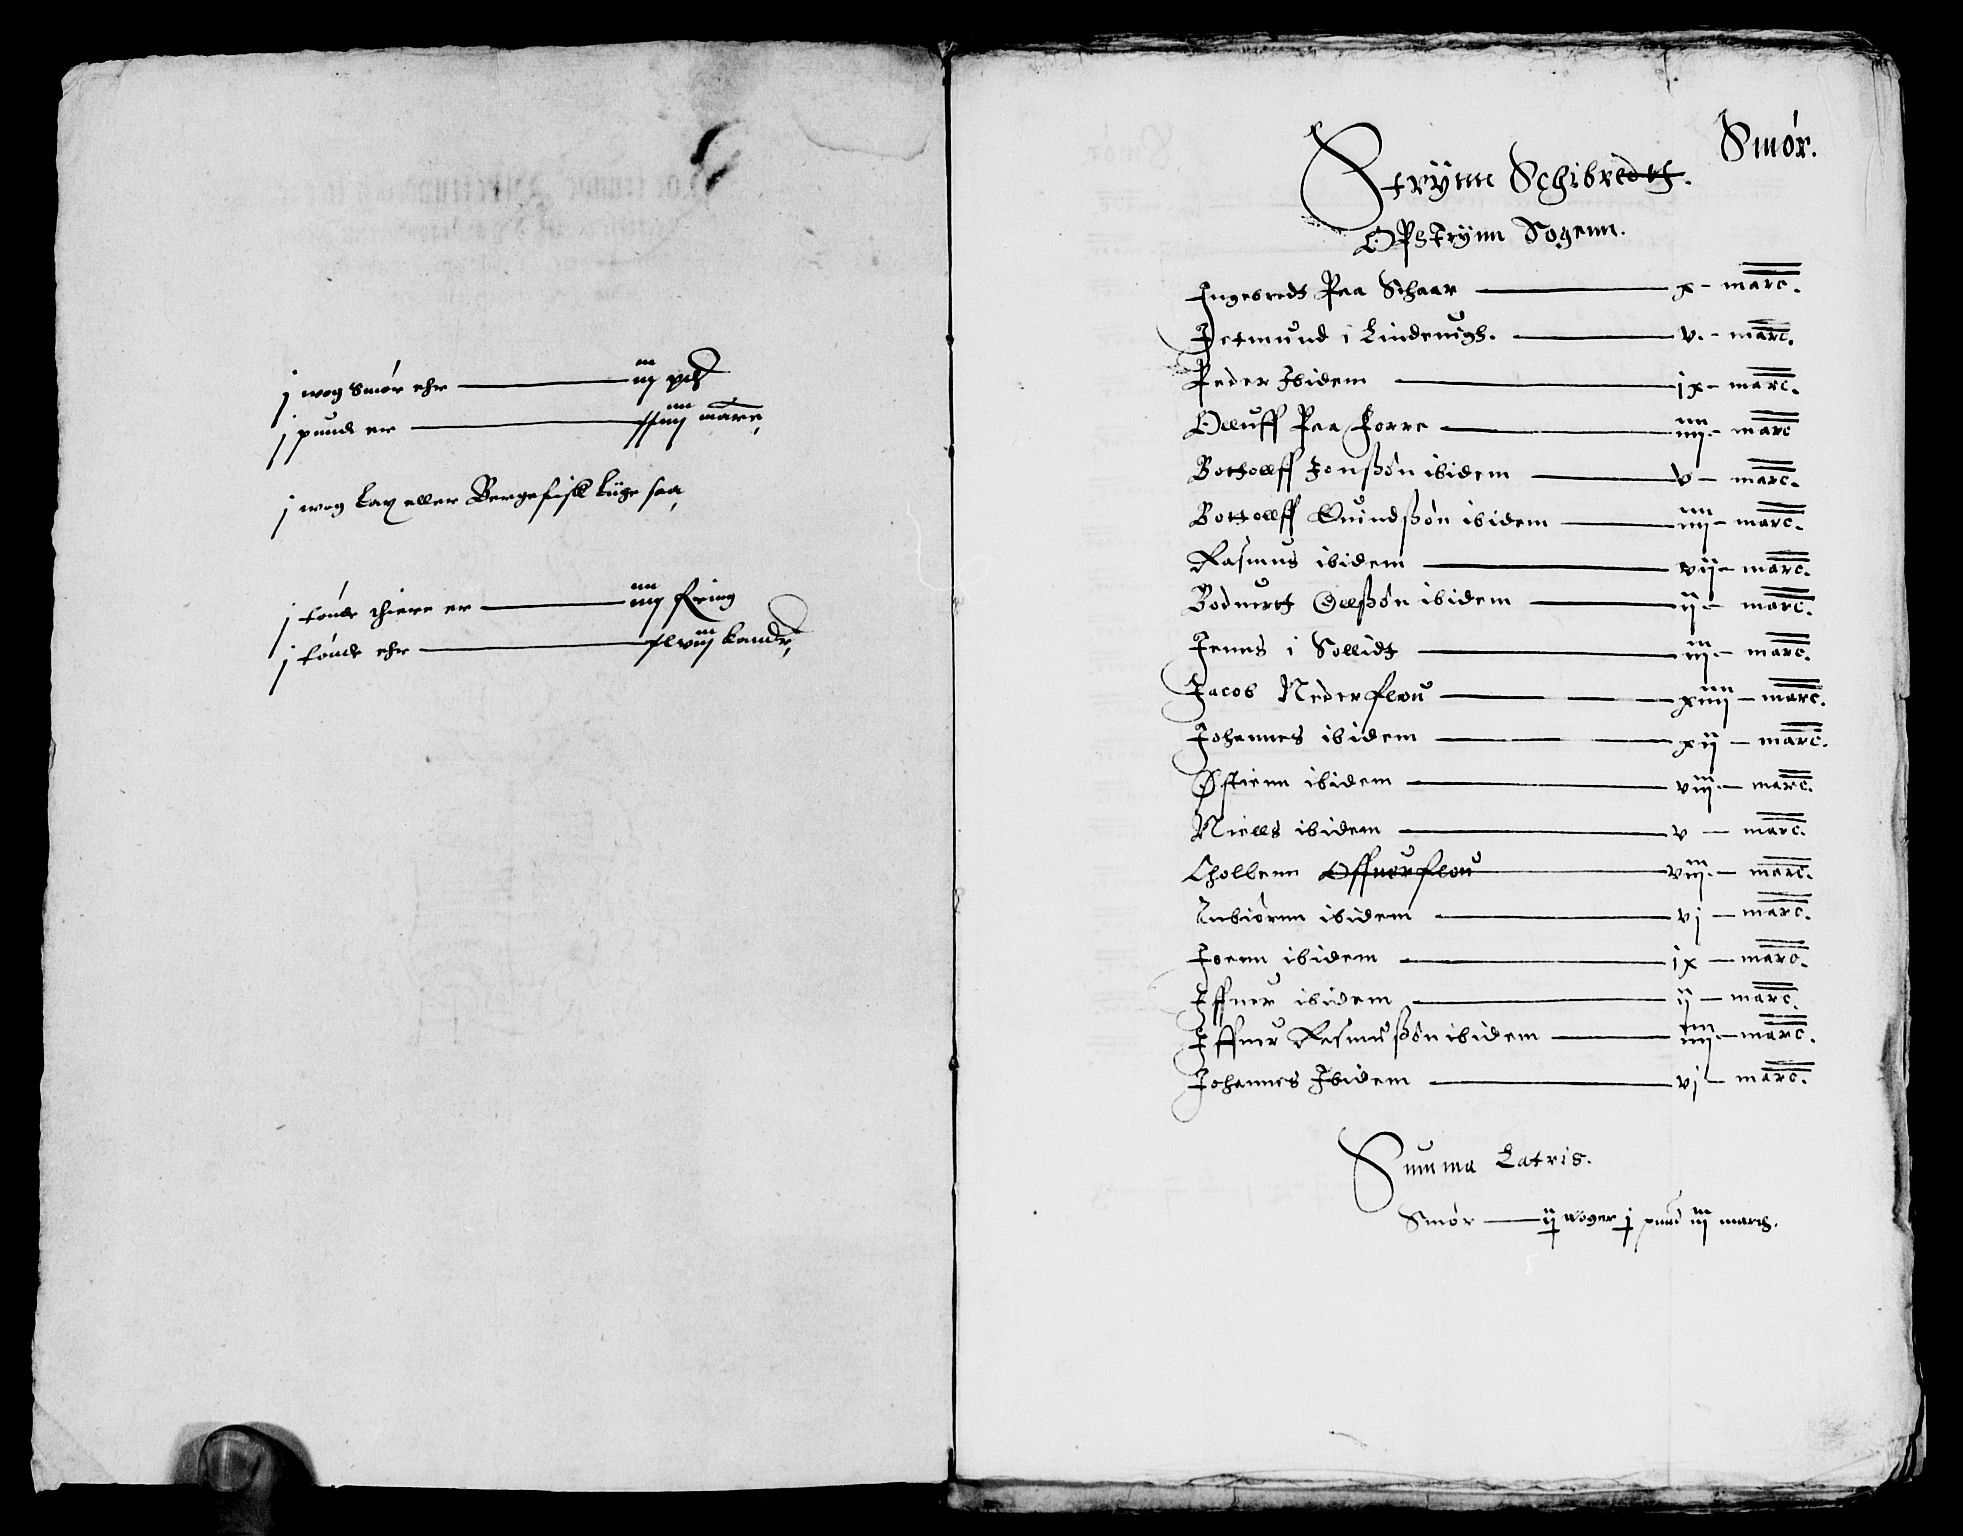 j wog Smör ehr — iij pd
j pundt er — xxiiij marc,
j wog Lax eller Bergefisk liige saa,
j tönde thiere er — iiij fering
j tönde ehr — xlviij kander,
Smör.
Strÿnn Schibredtt.
Opstrÿnn Sogenn.
Ingebredt Paa Schaar — x — marc.
Jetmund i Lindeuigh. — v. — marc.
Peder Ibidem — ix — marc.
Olluff Paa Forre — iiij. — marc
Bottolff Jonßön ibidem — v — marc.
Bottolff Euindßön ibidem — iiij — marc.
Rasmus ibidem — vij — marc.
Boduertt Ollßön ibidem — ij — marc.
Jenns i Sollidt — iij. — marc.
Jacob Nederflou — xiiij — marc.
Johannes ibidem — xij — marc.
Østienn ibidem — viij. — marc.
Niells ibidem — v — marc.
Chollenn Offuerflou — viij. — marc.
Anbiörnn ibidem — vj — marc.
Joenn ibidem — ix — marc.
Iffuer ibidem — ij — marc.
Iffuer Rasmußön ibidem — iiij. — marc.
Johannes Ibidem — vj — marc.
Summa Latris.
Smör — ij woger j pund iij marc.